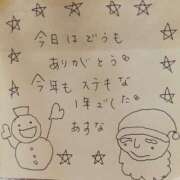 今日はどうも
ありがとう。
今年もステキな
1年でした。
あすな